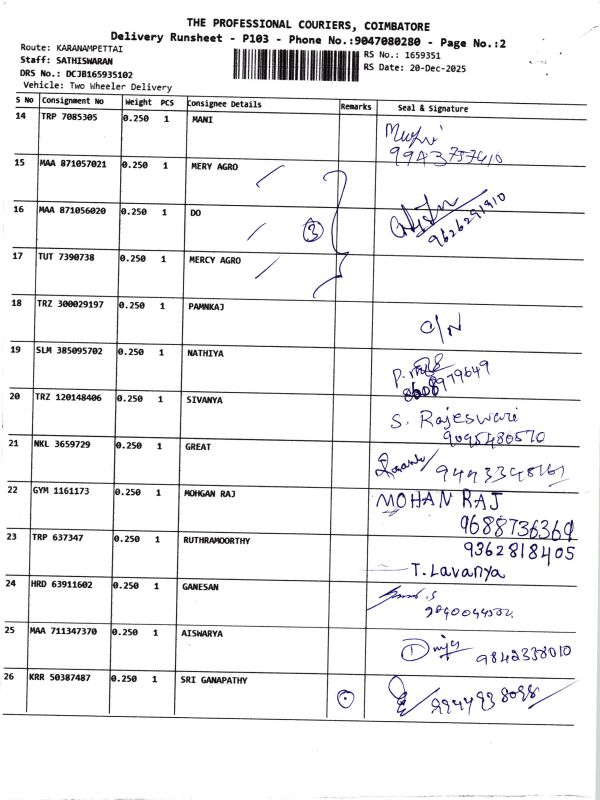 THE PROFESSIONAL COURIERS, COIMBATORE
Delivery Runsheet - P103 - Phone No.:9047080280 - Page No.:2
Route: KARANAMPETTAI
RS No.: 1659351
Staff: SATHISWARAN
RS Date: 20-Dec-2025
DRS No.: DCJB165935102
Vehicle: Two Wheeler Delivery
S No Consignment No Weight PCS Consignee Details Remarks Seal & Signature
14 TRP 7085305 0.250 1 MANI
15 MAA 871057021 0.250 1 MERY AGRO
16 MAA 871056020 0.250 1 DO 3 9626291910
17 TUT 7390738 0.250 1 MERCY AGRO
18 TRZ 300029197 0.250 1 PAMNKAJ C/N
19 SLM 385095702 0.250 1 NATHIYA
20 TRZ 120148406 0.250 1 SIVANYA S. Rajeswari
9095480570
21 NKL 3659729 0.250 1 GREAT 9443348161
22 GYM 1161173 0.250 1 MOHGAN RAJ MOHAN RAJ
9688736369
23 TRP 637347 0.250 1 RUTHRAMOORTHY 9362818405
T. Lavanya
24 HRD 63911602 0.250 1 GANESAN
25 MAA 711347370 0.250 1 AISWARYA 9842338010
26 KRR 50387487 0.250 1 SRI GANAPATHY